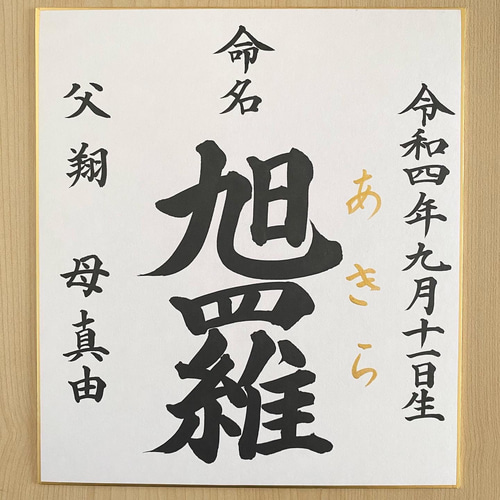 令和四年九月十一日生
あきら
命名
旭羅
父 翔 母 真由